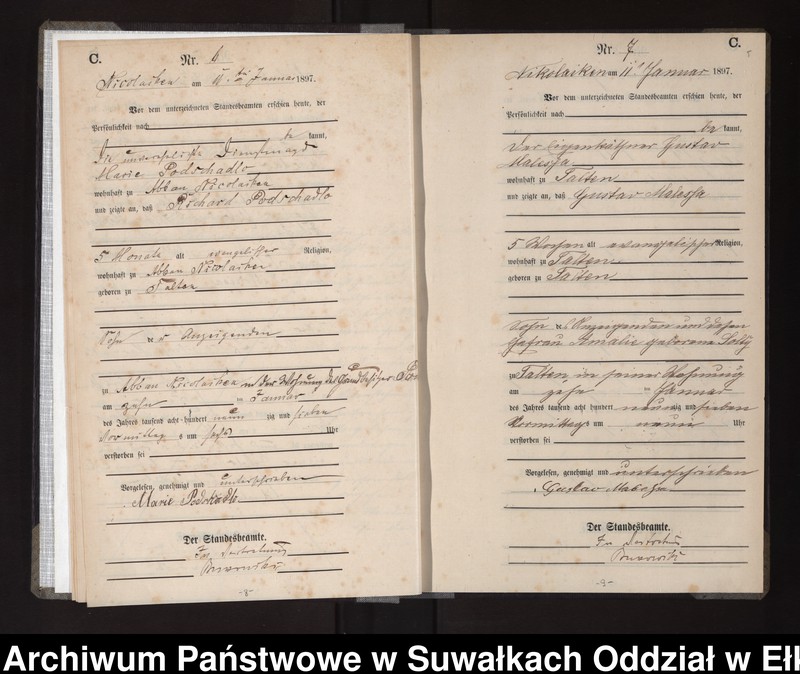 C.
Nr. 6
Nicolaiken am 11. ten Januar 1897.
Vor dem unterzeichneten Standesbeamten erschien heute, der
Persönlichkeit nach
be kannt,
Die unverehelichte Dienstmagd
Marie Podschadlo
wohnhaft zu Abbau Nicolaiken
und zeigte an, daß Richard Podschadlo
5 Monate alt evangelischer Religion,
wohnhaft zu Abbau Nicolaiken
geboren zu Talten
Sohn der Anzeigenden
zu Abbau Nicolaiken in der Wohnung des
am zehn ten Januar
des Jahres tausend acht hundert neun zig und sieben
Vormittags um sechs Uhr
verstorben sei
Vorgelesen, genehmigt und unterschrieben
Marie Podschadlo
Der Standesbeamte.
-8-
Nr. 7
C.
Nikolaiken am 11 Januar 1897.
Vor dem unterzeichneten Standesbeamten erschien heute, der
Persönlichkeit nach
be kannt,
der Eigenkäthner Gustav
Malessa
wohnhaft zu Talten
und zeigte an, daß Gustav Malessa
5 Wochen alt evangelischer Religion,
wohnhaft zu Talten
geboren zu Talten
Sohn des Anzeigenden und dessen
Ehefrau Amalie geborene
zu Talten, in seiner Wohnung
am zehn ten Januar
des Jahres tausend acht hundert neunzig und sieben
Vormittags um neun Uhr
verstorben sei
Vorgelesen, genehmigt und unterschrieben
Gustav Malessa
Der Standesbeamte.
-9-
Archiwum Państwowe w Suwałkach Oddział w Ełk